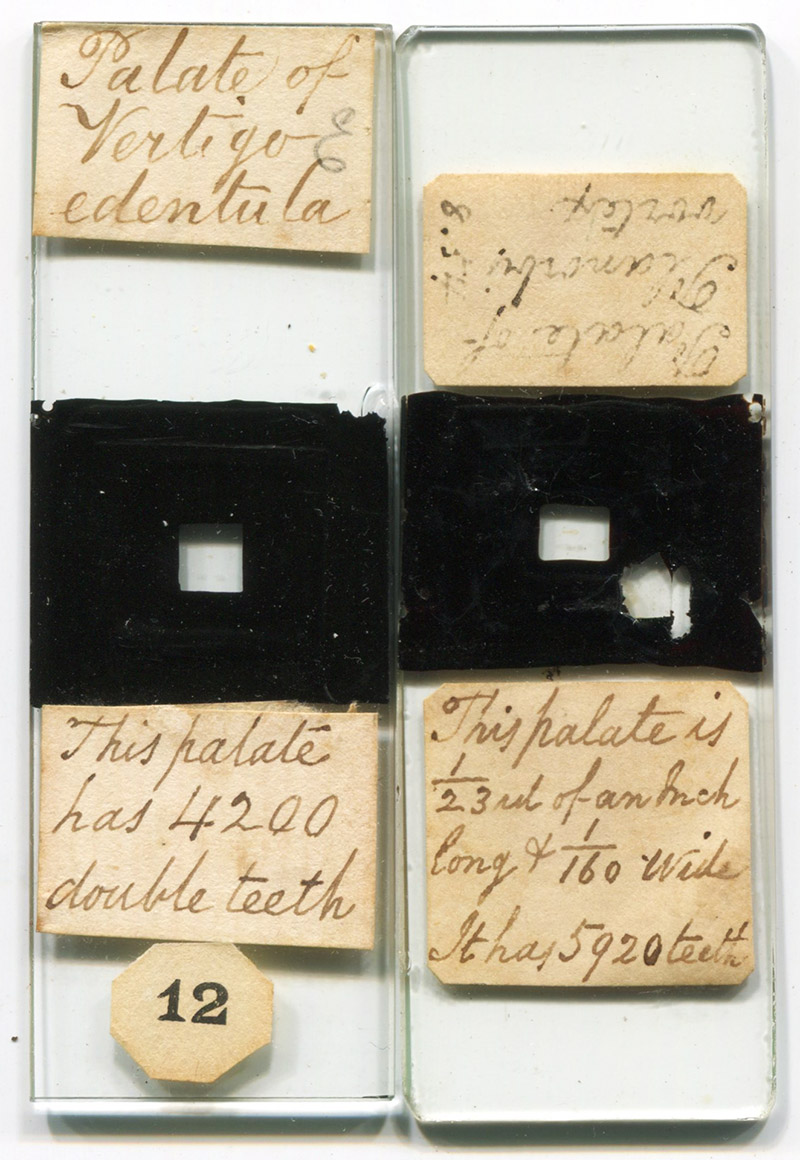 Palate of
Vertigo
edentula
E
This palate
has 4200
double teeth
12
Palate of
Planorbis
vortex
This palate is
1/23rd of an Inch
long & 1/160 Wide
It has 5920 teeth